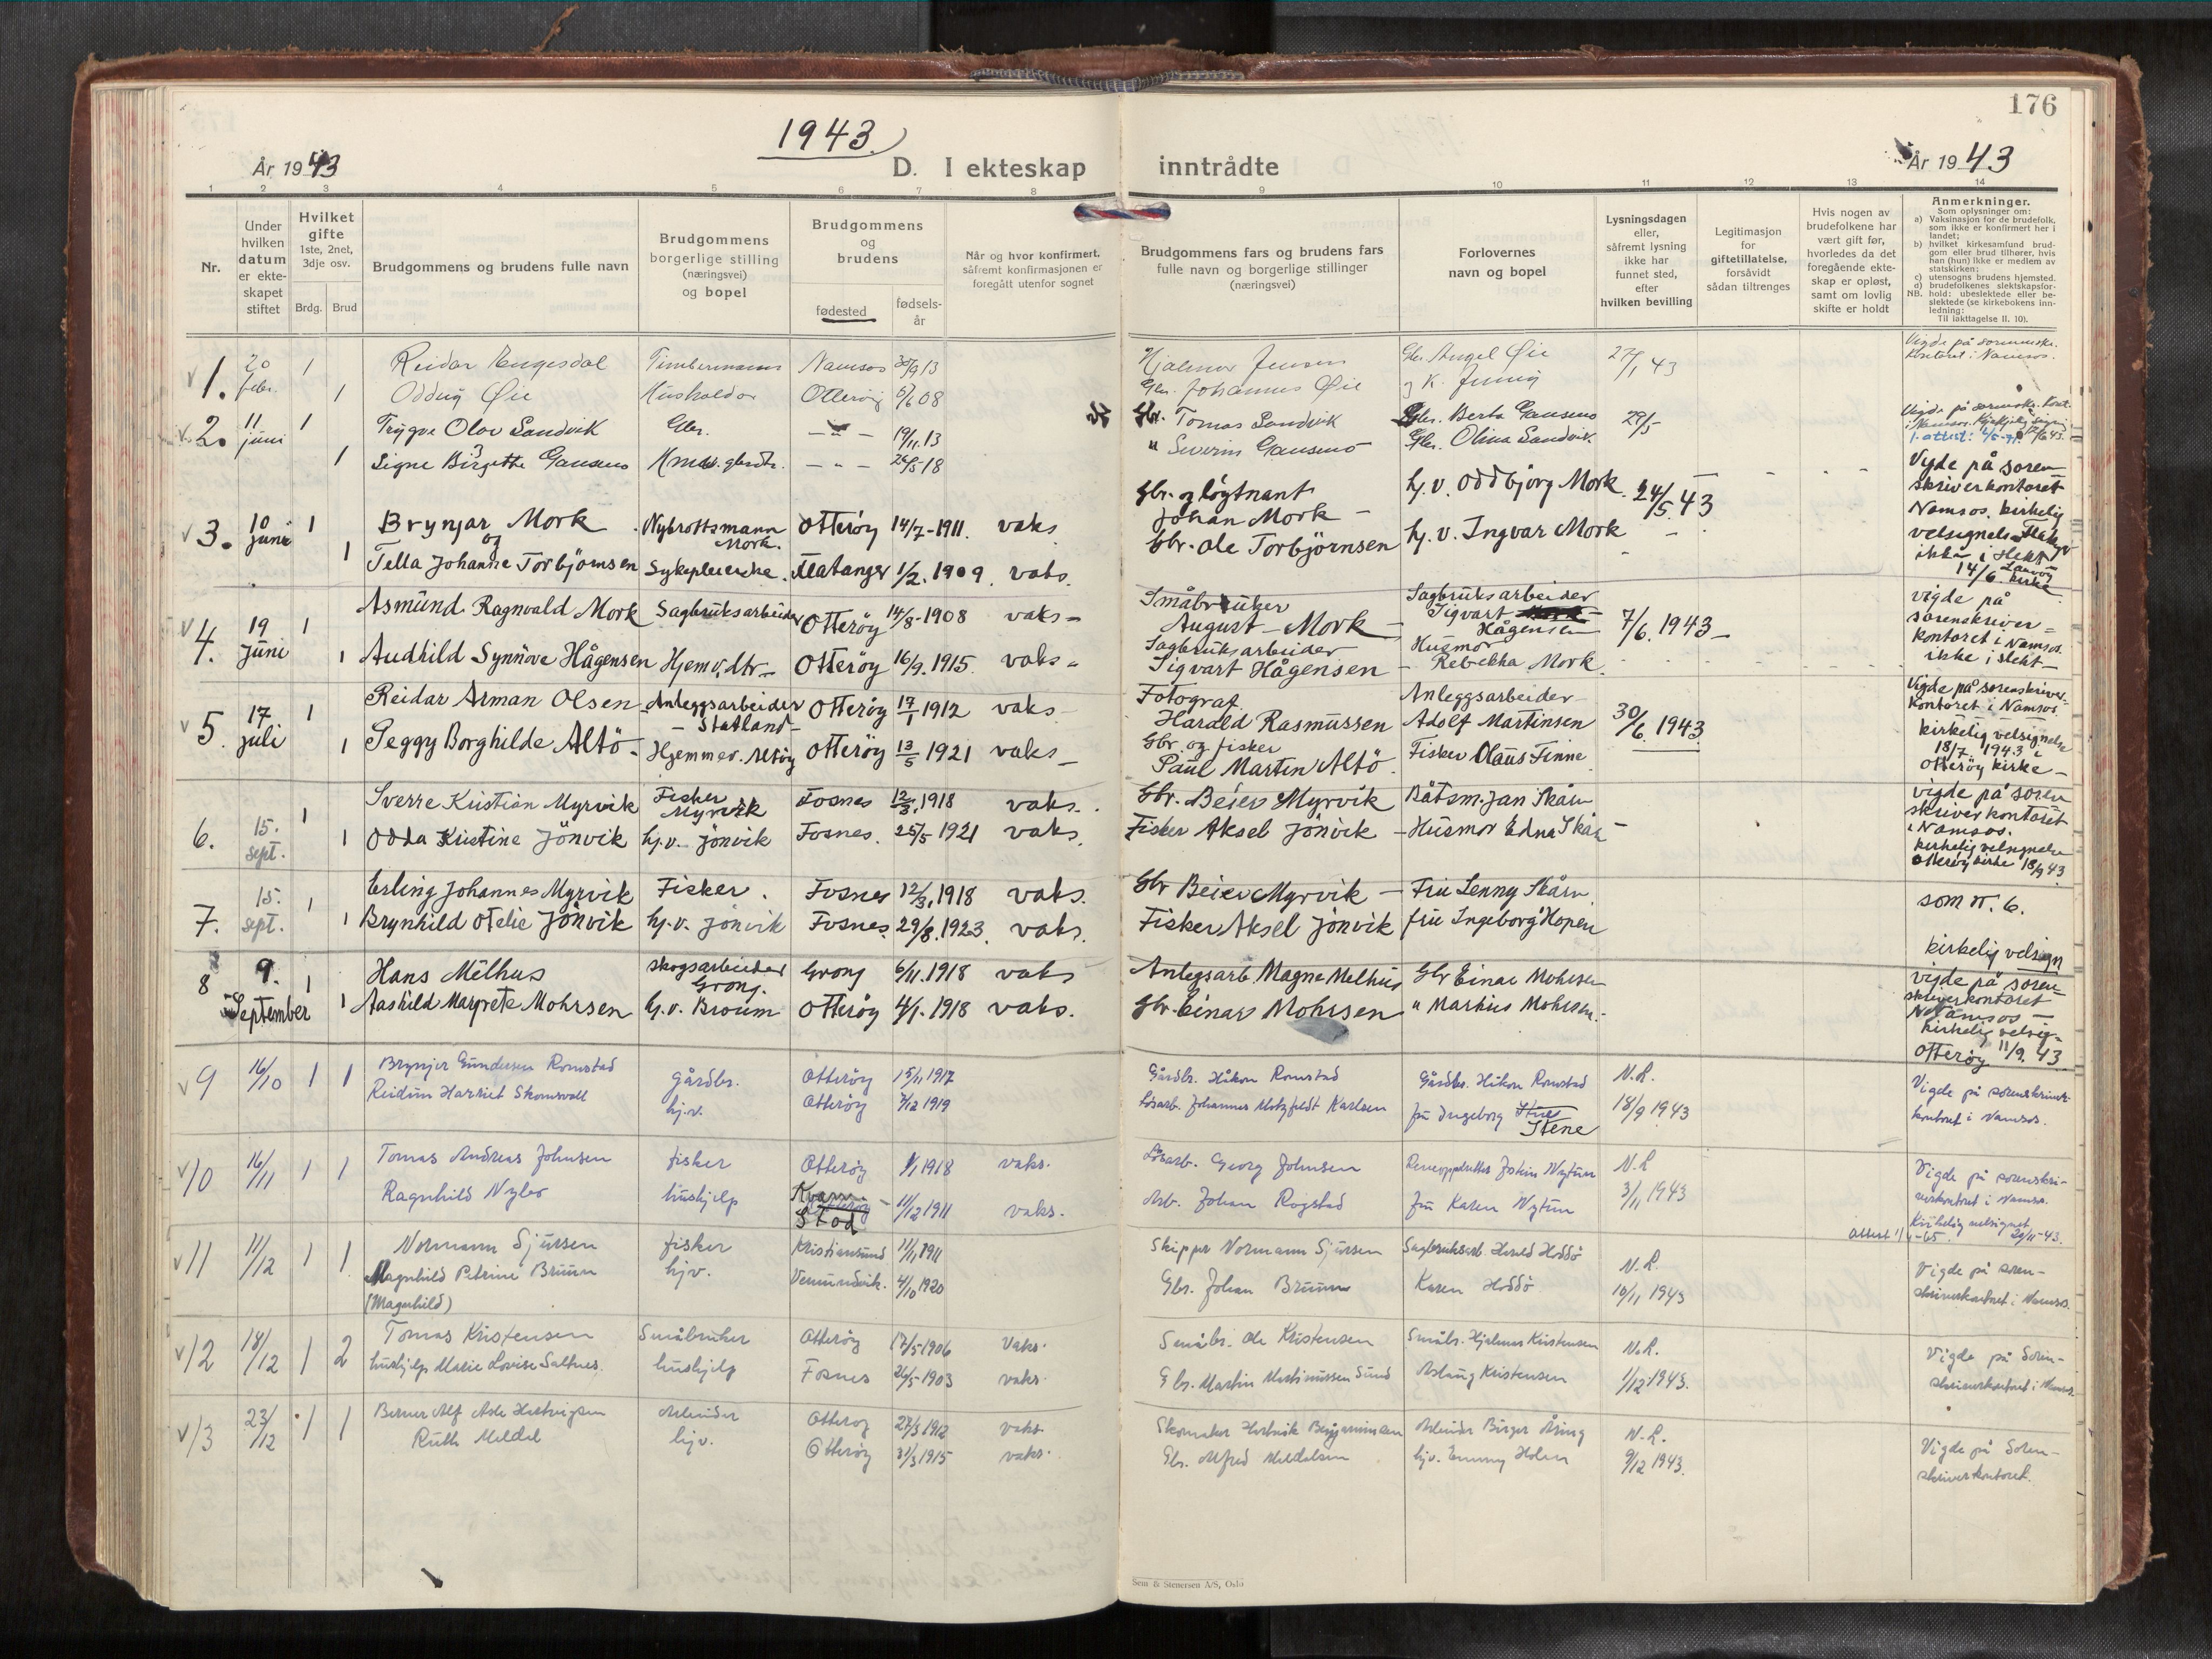 176
1943.
År 1943
D. I ekteskap inntrådte
År 1943
1 2 3 4 5 6 7 8 9 10 11 12 13 14
Nr.
Under hvilken datum er ekteskapet stiftet
Hvilket gifte
1ste, 2net, 3dje osv.
Brdg. Brud
Brudgommens og brudens fulle navn
Brudgommens borgerlige stilling (næringsvei) og bopel
Brudgommens og brudens
fødested
fødselsår
Når og hvor konfirmert, såfremt konfirmasjonen er foregått utenfor sognet
Brudgommens fars og brudens fars fulle navn og borgerlige stillinger (næringsvei)
Forlovernes navn og bopel
Lysningsdagen eller, såfremt lysning ikke har funnet sted, efter hvilken bevilling
Legitimasjon for giftetillatelse, forsåvidt sådan tiltrenges
Hvis nogen av brudefolkene har vært gift før, hvorledes da det foregående ekteskap er opløst, samt om lovlig skifte er holdt
Anmerkninger.
Som oplysninger om:
a) Vaksinasjon for de brudefolk, som ikke er konfirmert her i landet;
b) hvilket kirkesamfund brudgom eller brud tilhører, hvis han (hun) ikke er medlem av statskirken;
c) utensogns brudens hjemsted.
d) brudefolkenes slektskapsforhold: ubeslektede eller beslektede (se kirkebokens innledning:
NB. Til iakttagelse II. 10).
1. 20 febr. 1 Reidar Engesdal Namsos 13 Hjalmar Jensen 27/1 43
1 Oddny Øie Otterøy 5/6 08 Gbr. Johannes Øie
2. 11 juni 1 Trygve Olav Sandvik Gbr. — " — 19/11.13 Gbr. Tomas Sandvik Gbr. Berta 29/5
1 Signe Birgitte — " — 18 " Severin Gbr. Olina Sandvik
3. 10 juni 1 Brynjar Mork Nybrottsmann Mork. Otterøy 14/7-1911. vaks. Gbr. og løgtnant Johan Mork — hj.v. Oddbjørg Mork 24/5.43 Vigde på sorenskriverkontoret Namsos. kirkelig
og
1 Tella Johanne Torbjørnsen Sykepleierske. Flatanger 1/2.1909. vaks. Gbr. Ole Torbjørnsen hj.v. Ingvar Mork 14/6 kirke
4. 19 juni 1 Asmund Ragnvald Mork Sagbruksarbeider Otterøy 14/8-1908 vaks— Småbruker August Mork Sagbruksarbeider Sigvart Hågensen 7/6.1943 vigde på sorenskriverkontoret i Namsos.
1 Audhild Synnøve Hågensen Hjemv.dtr— Otterøy 16/9.1915. vaks— Sagbruksarbeider Sigvart Hågensen Husmor Rebekka Mork. ikke i slekt—
5. 17 juli 1 Reidar Arman Olsen Anleggsarbeider —Statland— Otterøy 17/1 1912 vaks— Fotograf Harald Rasmussen Anleggsarbeider Adolf Martinsen 30/6.1943 Vigde på sorenskriverkontoret i Namsos.
1 Peggy Borghilde Altö— Hjemmev. Altøy Otterøy 13/5 1921 vaks— Gbr. og fisker Paul Martin Altö. Fisker Olaus Finne kirkelig velsignelse 18/7 1943 i Otterøy kirke—
6. 15. sept. 1 Sverre Kristian Myrvik Fisker Myrvik Fosnes 12/3.1918 vaks. Gbr. Beier Myrvik Båtsm. Jan Skårn vigde på sorenskriverkontoret i Namsos.
1 Odda Kristine Jönvik hj.v. Jönvik Fosnes. 25/5 1921 vaks. Fisker Aksel Jönvik — Husmor Edna kirkelig velsignelse Otterøy kirke 18/9 43
7. 15. sept. 1 Erling Johannes Myrvik Fisker. Fosnes 12/3.1918 vaks. Gbr Beier Myrvik — Fru Lenny Skårn som n. 6.
1 Brynhild Otelie Jönvik hj.v. Jönvik Fosnes. 29/8.1923. vaks. Fisker Aksel Jönvik fru Ingeborg Hopen
8 9. September 1 Hans Melhus skogsarbeider Grong. Grong 6/11.1918 vaks Anlegsarb. Magne Melhus Gbr Einar Mohrsen kirkelig velsign
1 Aashild Margrete Mohrsen hj.v. Otterøy 4/1.1918 vaks. Gbr. Einar Mohrsen " Markus Mohrsen. vigde på sorenskriverkontoret Namsos— kirkelig velsig— Otterøy 11/9.43
9 16/10 1 1 Brynjar Gundersen Romstad gårdbr. Otterøy 15/11 1917 Gårdbr. Håkon Romstad Gårdbr. Håkon Romstad N.L. Vigde på sorenskriverkontoret i Namsos.
Reidun Harriet hj.v. Otterøy 1919 Løsarb. Johannes Motzfeldt Karlsen fru Ingeborg Stene 18/9 1943
10 16/11 1 1 Tomas Andreas Johnsen fisker Otterøy 1918 vaks. Løsarb. Georg Johnsen N.L. Vigde på sorenskriverkontoret i Namsos.
Ragnhild hushjelp Kvam Stod 11/12 1911 vaks. Arb. Johan Rogstad fru Karen 3/11 1943 Kirkelig velsignet 43.
11 11/12 1 1 Normann Sjursen fisker Kristiansund 1911 Skipper Normann Sjursen Sagbruksarb. Harald Hoddö N.L. Vigde på sorenskriverkontoret i Namsos.
Magnhild Petrine Bruun hjv. Vemundvik. 4/10 1920 Gbr. Johan Bruun Karen Hoddö 10/11 1943
(Magnhild)
12 18/12 1 2 Tomas Kristensen Småbruker Otterøy 17/5-1906 Vaks. Småbr. Ole Kristensen Småbr. Hjalmar Kristensen N.L. Vigde på Sorenskriverkontoret i Namsos
hushjelp Marie Lovise Saltnes. hushjelp Fosnes 26/5-1903 vaks. Gbr. Martin Martinussen Sund Aslaug Kristensen 1/12.1943.
13 23/12 1 1 Berner Alf Hertvigsen Arbeider Otterøy 27/3 1912 vaks. Skomaker Benjaminsen Arbeider Birger N.L. Vigde på Sorenskriverkontoret.
Ruth Meldal hjv. Otterøy 31/3 1915 vaks. Gbr. Alfred Meldalsen hjv. Emmy Holm 9/12 1943.
Sem & Stenersen A/S, Oslo